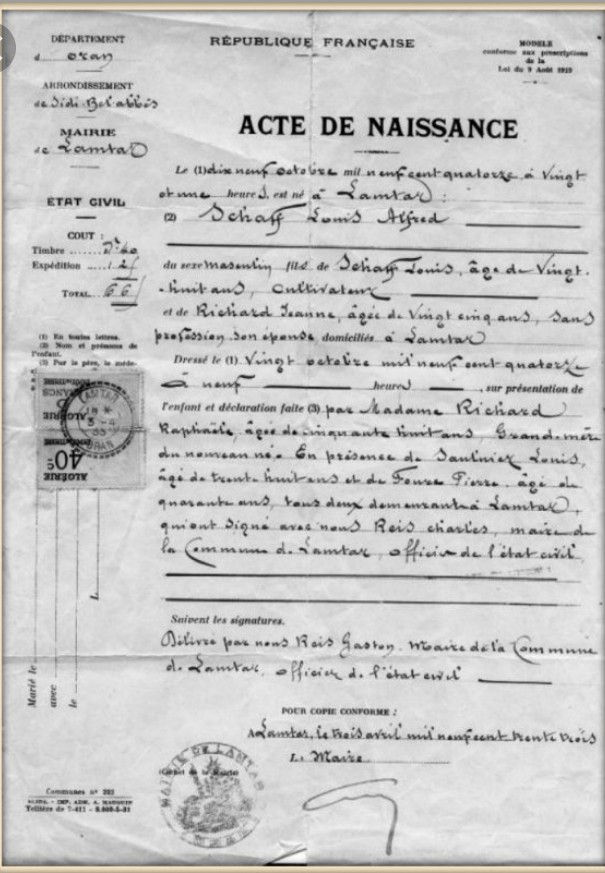 DÉPARTEMENT
d Oran
ARRONDISSEMENT
de Sidi-Bel-abbès
MAIRIE
de Lamtar
ÉTAT CIVIL
COUT :
Timbre
Expédition
TOTAL
(1) En toutes lettres.
(2) Nom et prénoms de
l'enfant.
(3) Par le père, le méde-
RÉPUBLIQUE FRANÇAISE
MODELE
conforme aux prescriptions
de la
Loi du 9 Août 1919
ACTE DE NAISSANCE
Le (1) dix neuf octobre mil neuf cent quatorze à vingt
et une heures est né à Lamtar :
(2) Schaff Louis Alfred
du sexe masculin fils de Schaff Louis, âgé de vingt-
huit ans, cultivateur
et de Richard Jeanne, âgée de vingt cinq ans, sans
profession son épouse domiciliés à Lamtar
Dressé le (1) vingt octobre mil neuf cent quatorze
à neuf heures, sur présentation de
l'enfant et déclaration faite (3) par Madame Richard
Raphaële, âgée de cinquante huit ans, Grand-mère
du nouveau né. En présence de Saulnier Louis,
âgé de trente huit ans et de Pierre âgé de
quarante ans, tous deux demeurant à Lamtar,
qui ont signé avec nous Reis charles, maire de
la Commune de Lamtar, officier de l'état civil
Suivent les signatures.
Délivré par nous Reis Gaston. Maire de la Commune
de Lamtar, officier de l'état civil
POUR COPIE CONFORME :
A Lamtar, le trois avril mil neuf cent trente trois
Le Maire
(Cachet de la Mairie)
MAIRIE DE LAMTAR
ALGERIE
40c
LAMTAR
ORAN
Marié le
avec
le
L
Communes n° 223